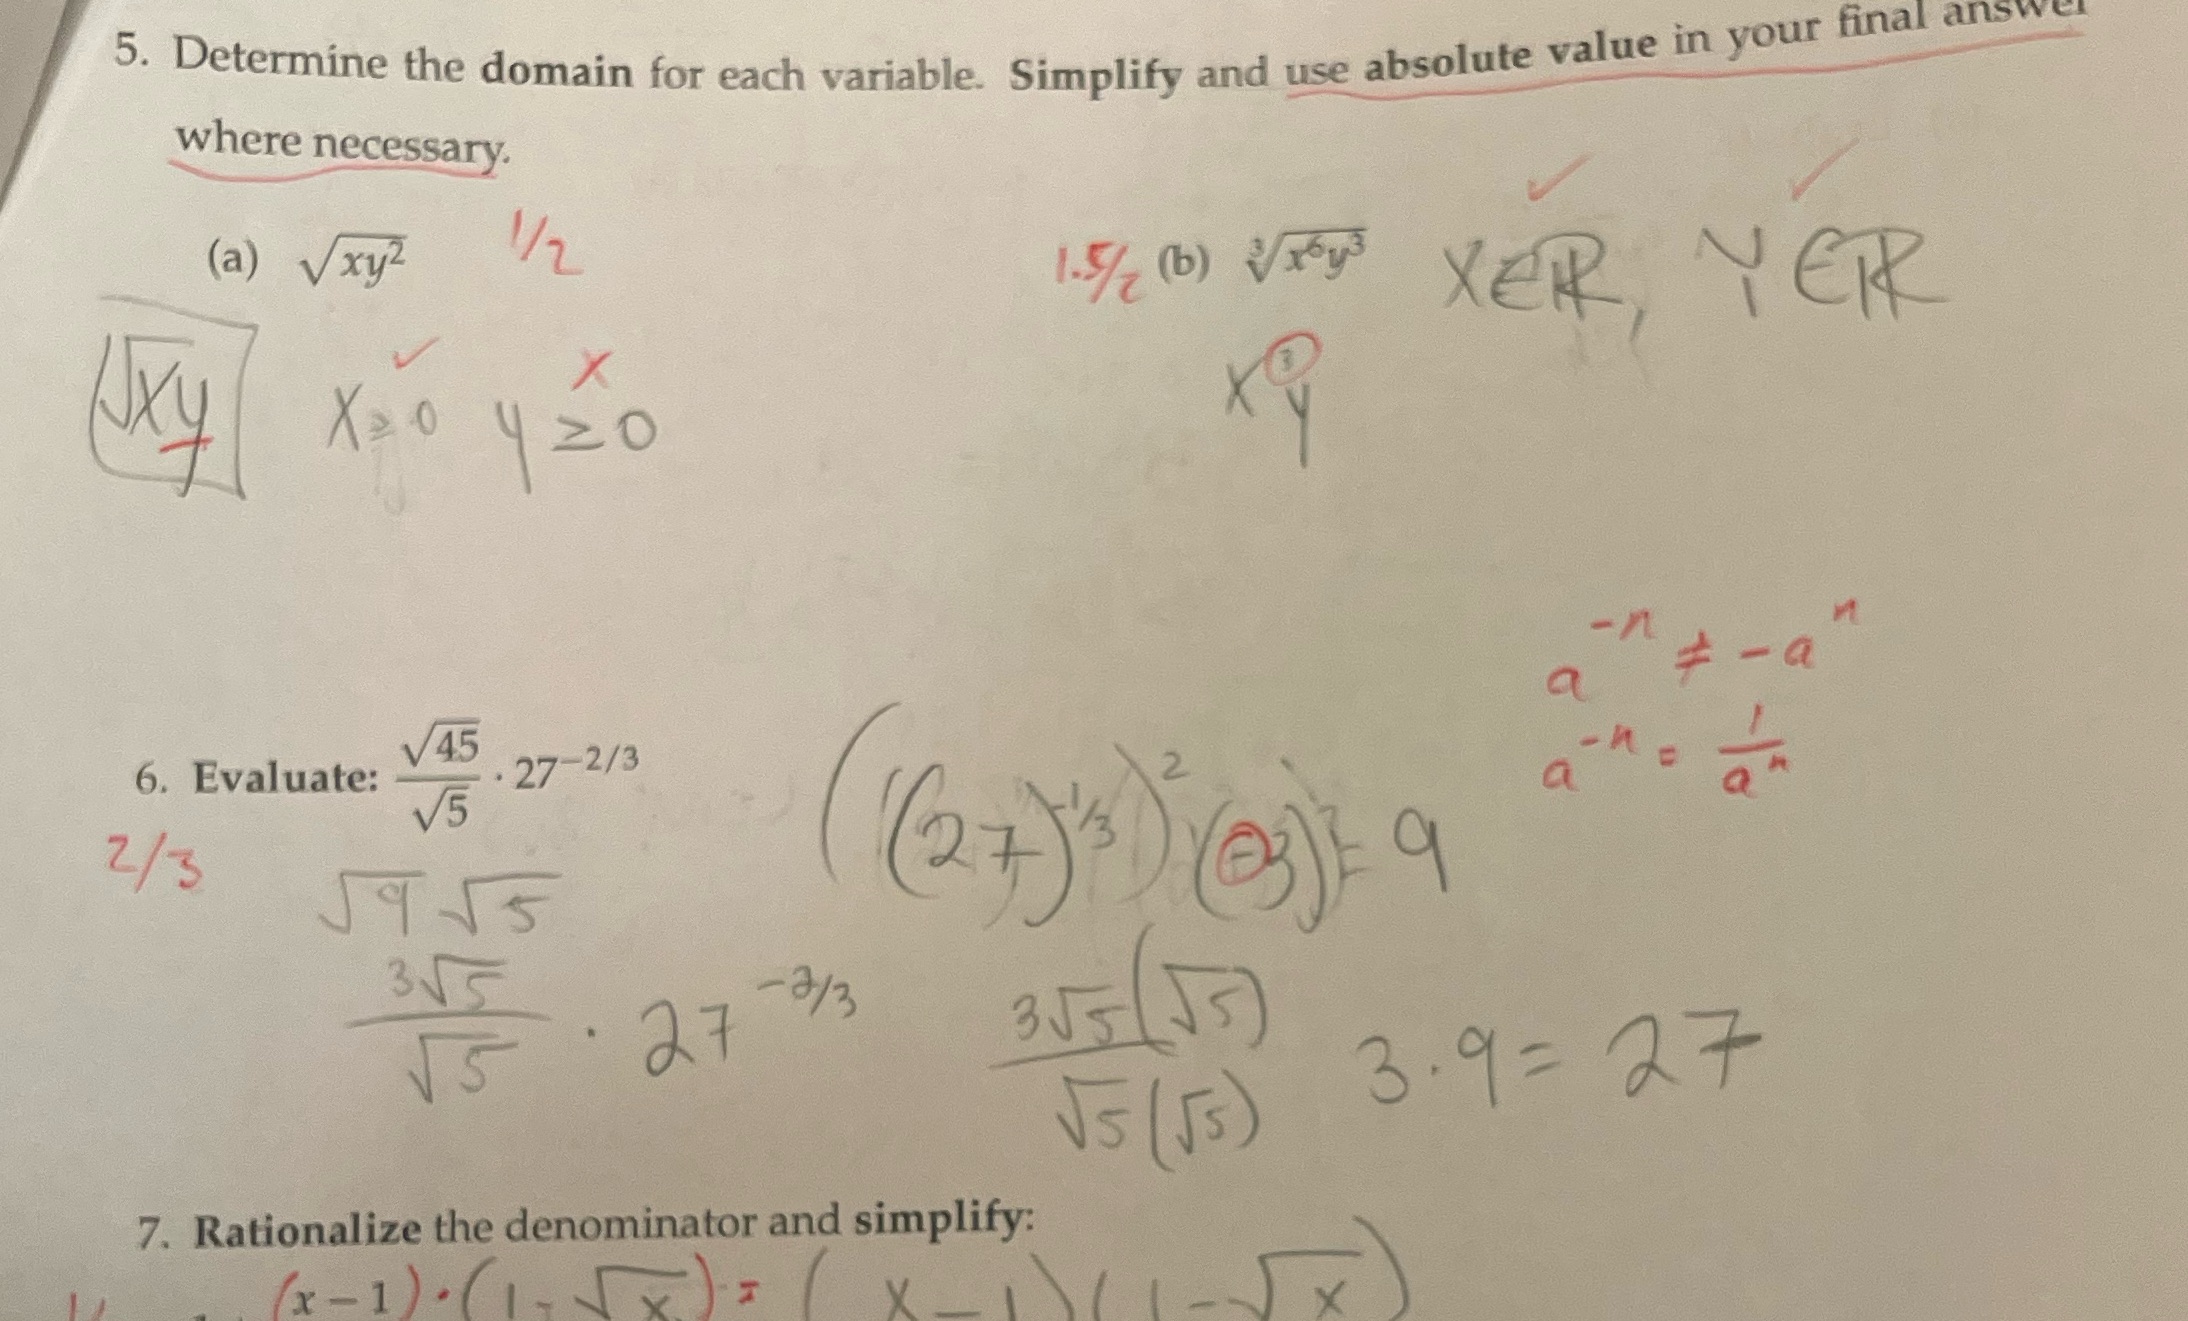 5. Determine the domain for each variable. Simplify and use absolute value in your final answer
where necessary.
(a) √xy² 1/2
1.5/2 (b) ∛x⁶y³ X∈ℝ, Y∈ℝ
√xy x≥0 y≥0
x³y
a⁻ⁿ ≠ -aⁿ
a⁻ⁿ = 1/aⁿ
6. Evaluate: √45/√5 · 27^(-2/3)
((27)^(-1/3))² (-3)² = 9
2/3
√9 √5
3√5/√5 · 27^(-2/3)
3√5(√5)/√5(√5) 3·9 = 27
7. Rationalize the denominator and simplify:
(x-1)·(1-√x) = (x-1)(1-√x)